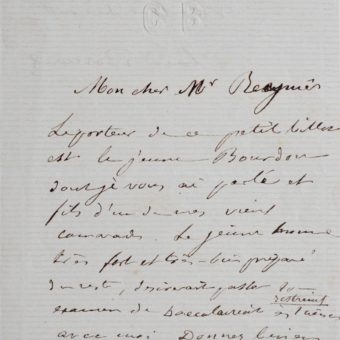 Mon cher Mr Regnier
Le porteur de ce petit billet
est le jeune Bourdon
dont je vous ai parlé et
fils d'un de mes vieux
camarades. Le jeune homme
très fort et très-bien préparé
du reste, désirerait passer son
examen de Baccalauréat ès sciences
avec moi. Donnez